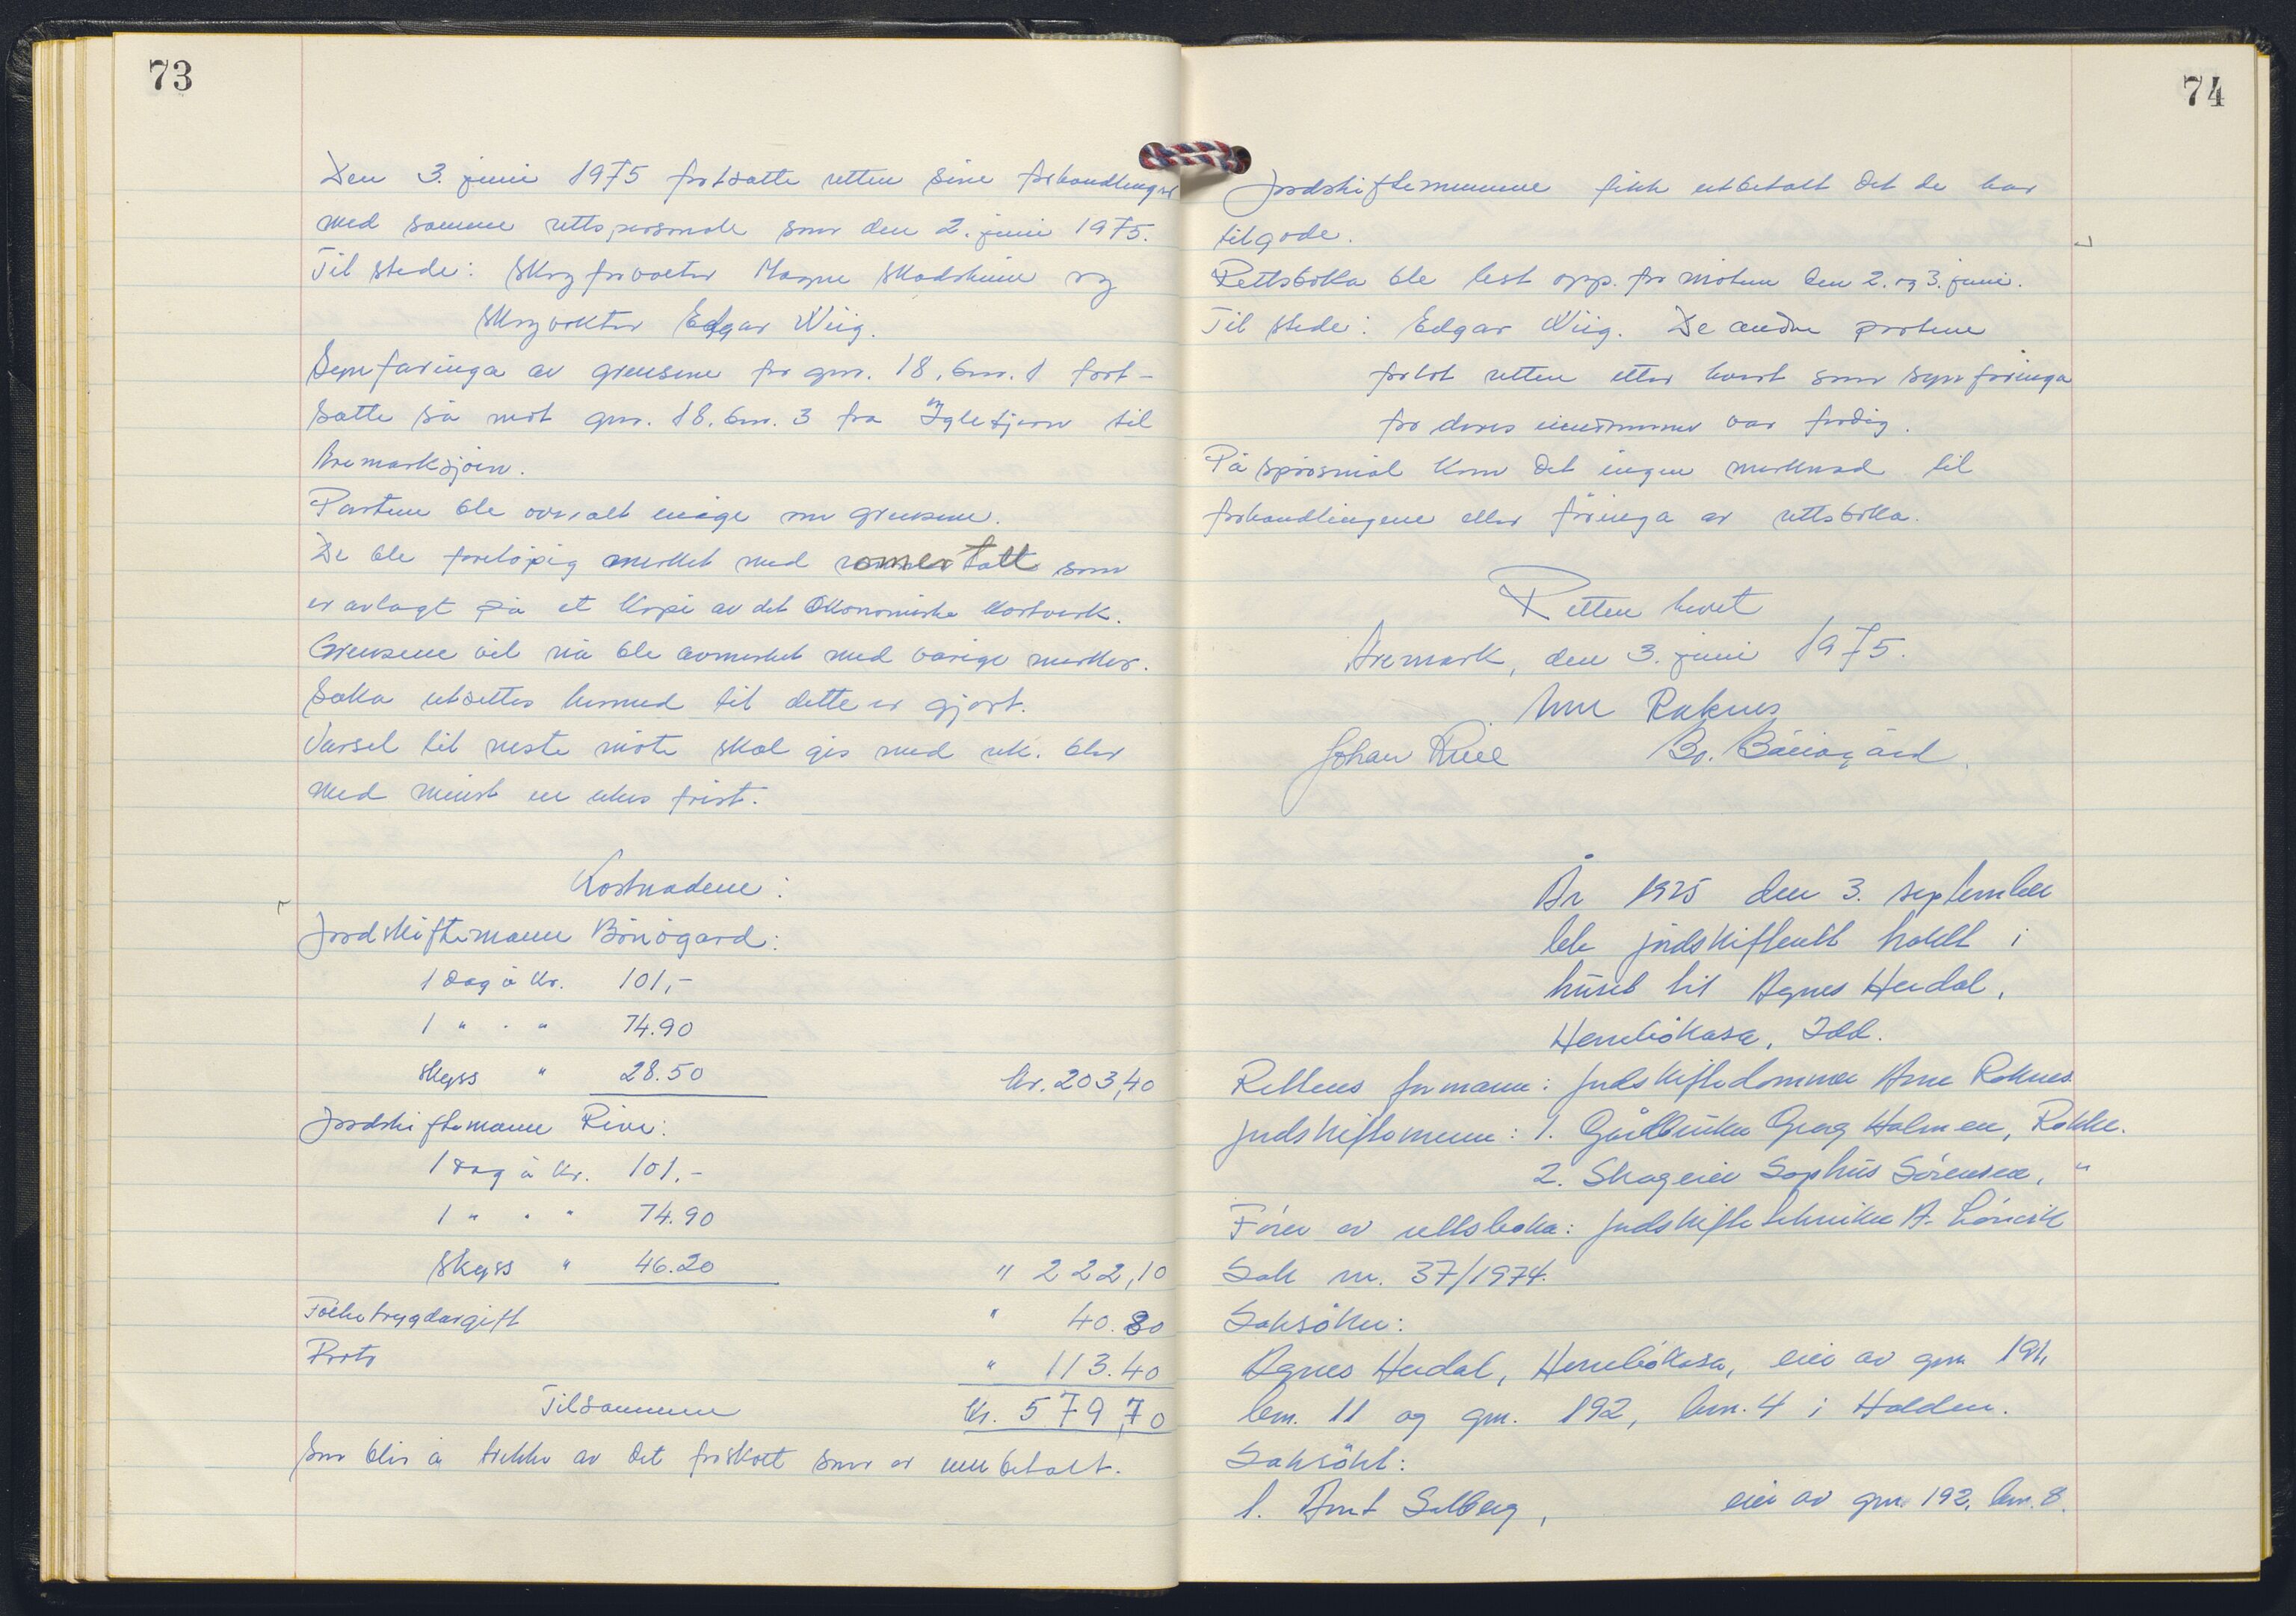 73
Den 3. juni 1975 fortsatte retten sine forhandlinger
med samme rettspersonale som den 2. juni 1975.
Til stede: Skogforvalter Magne og
Skogvokter Edgar Wiig.
Synfaringa av grensene for gnr. 18, bnr. 1 fort-
satte så mot gnr. 18, bnr. 3 fra Igletjern til
Aremarksjøen.
Partene ble overalt enige om grensene.
De ble foreløpig merket med romertall som
er avlagt på et kopi av det Økonomiske kartverk.
Grensene vil nå ble avmerket med varige merker.
Saka utsettes hermed til dette er gjort.
Varsel til neste møte skal gis med rek. brev
med minst en ukes frist.
Kostnadene:
Jordskiftemann Børiøgard:
1 dag à kr. 101,-
1 " " " 74.90
Skyss " 28.50 kr. 203,40
Jordskiftemann Rive:
1 dag à kr. 101,-
1 " " " 74.90
Skyss " 46.20 " 222,10
Folketrygdavgift " 40.80
Porto " 113.40
Tilsammen kr. 579,70
Som blir å trekke av det forskott som er innbetalt.
74
Jordskiftemennene fikk utbetalt det de har
tilgode.
Rettsboka ble lest opp for møtene den 2. og 3. juni.
Til stede: Edgar Wiig. De andre partene
forlot retten etter hvert som synfaringa
for deres eiendommer var ferdig.
På spørsmål kom det ingen merknad til
forhandlingene eller føringa av rettsboka.
Retten hevet
Aremark, den 3. juni 1975.
Arne Raknes
Johan Rive
År 1975 den 3. september
ble jordskifterett holdt i
huset til Agnes Heidal,
Idd.
Rettens formann: Jordskiftedommer Arne Raknes
Jordskiftemenn: 1. Gårdbruker Georg Holmen, Rokke.
2. Skogeier Sophus Sørensen, "
Fører av rettsboka: Jordskiftetekniker A.
Sak nr. 37/1974.
Saksøker:
Agnes Heidal, eier av gnr. 191,
bnr. 11 og gnr. 192, bnr. 4 i Halden.
Saksøkt:
1. Arnt Solberg, eier av gnr. 192, bnr. 8.